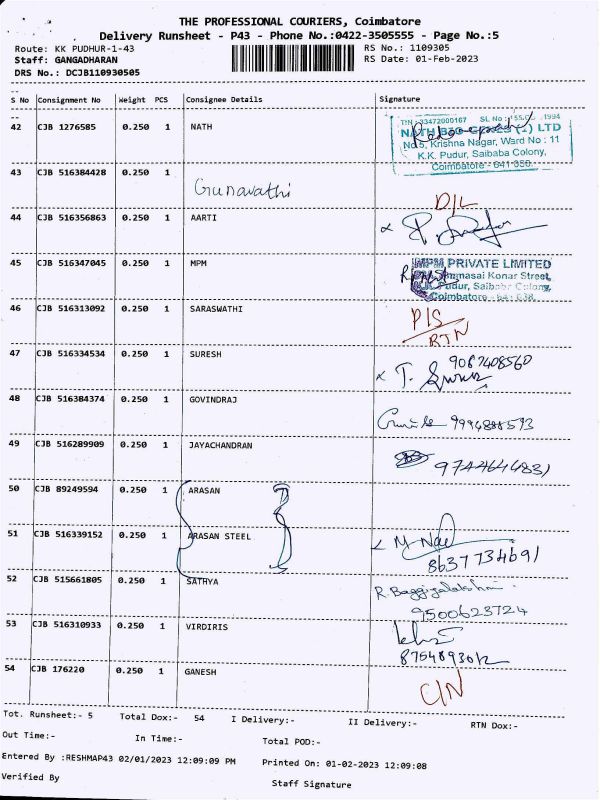 THE PROFESSIONAL COURIERS, Coimbatore
Delivery Runsheet - P43 - Phone No.:0422-3505555 - Page No.:5
Route: KK PUDHUR-1-43 RS No.: 1109305
Staff: GANGADHARAN RS Date: 01-Feb-2023
DRS No.: DCJB110930505
S No Consignment No Weight PCS Consignee Details Signature
42 CJB 1276585 0.250 1 NATH
TIN : 33472000167 SL No : 155.CL .1994
LTD
No 5, Krishna Nagar, Ward No : 11
K.K. Pudur, Saibaba Colony,
Coimbatore - 641 038.
43 CJB 516384428 0.250 1 Gunavathi D/L
44 CJB 516356863 0.250 1 AARTI
45 CJB 516347045 0.250 1 MPM
MPM PRIVATE LIMITED
Konar Street,
K.K. Pudur, Saibaba Colony,
Coimbatore - 641 038.
46 CJB 516313092 0.250 1 SARASWATHI P/S
RTN
47 CJB 516334534 0.250 1 SURESH 9087408560
48 CJB 516384374 0.250 1 GOVINDRAJ 9994888593
49 CJB 516289909 0.250 1 JAYACHANDRAN 9744646831
50 CJB 89249594 0.250 1 ARASAN
51 CJB 516339152 0.250 1 ARASAN STEEL
8637734691
52 CJB 515661805 0.250 1 SATHYA R. Baggiyalakshmi
9500623724
53 CJB 516310933 0.250 1 VIRDIRIS
54 CJB 176220 0.250 1 GANESH C/N
Tot. Runsheet:- 5 Total Dox:- 54 I Delivery:- II Delivery:- RTN Dox:-
Out Time:- In Time:- Total POD:-
Entered By :RESHMAP43 02/01/2023 12:09:09 PM Printed On: 01-02-2023 12:09:08
Verified By Staff Signature